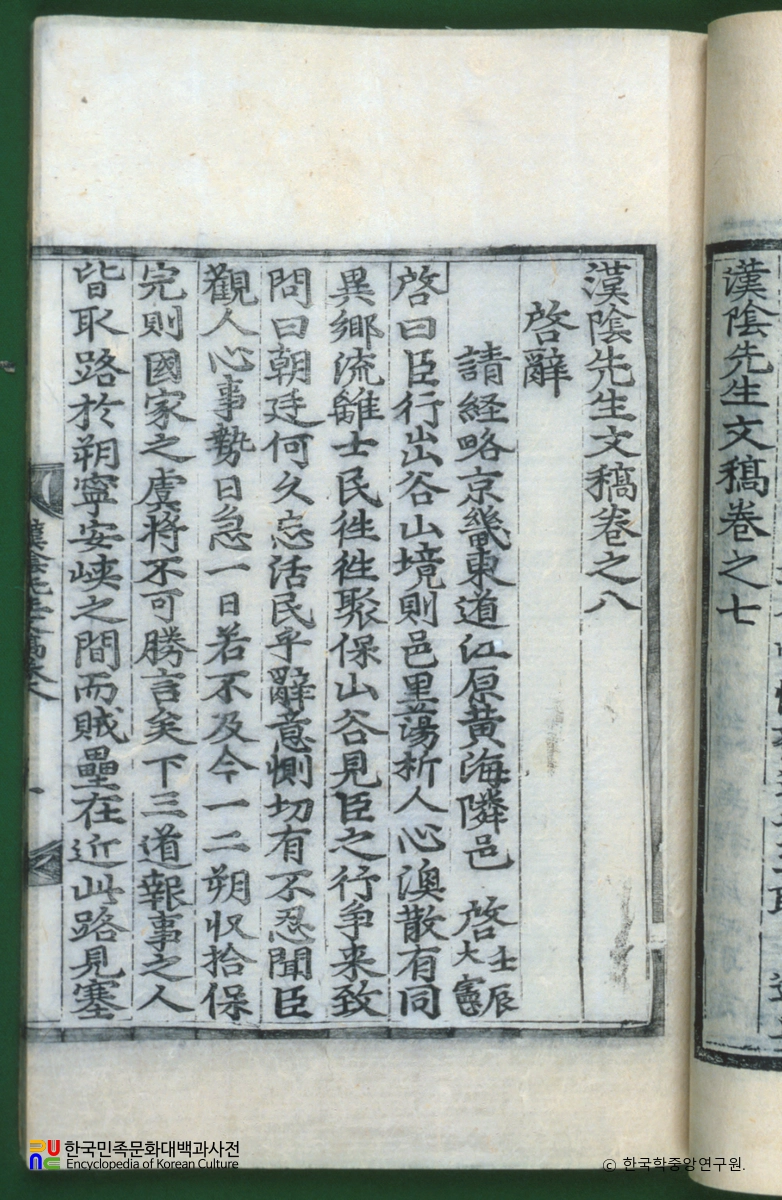 漢陰先生文稿卷之七
漢陰先生文稿卷之八
啓辭
請経略京畿東道江原黃海隣邑 啓 壬辰大憲
啓曰臣行出谷山境則邑里蕩析人心渙散有同
異鄉流離士民徃徃聚保山谷見臣之行爭来致
問曰朝廷何久忘活民乎辭意惻切有不忍聞臣
觀人心事勢日急一日若不及今一二朔収拾保
完則國家之虞將不可勝言矣下三道報事之人
皆取路於朔寧安峽之間而賊壘在近此路見塞
한국민족문화대백과사전
Encyclopedia of Korean Culture
© 한국학중앙연구원.